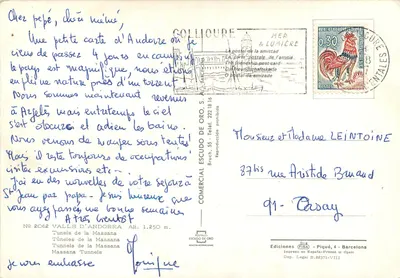 Cher pépé, chère mémé,
Une petite carte d'Andorre où je
viens de passer 4 jours en camping
le pays est magnifique, nous étions
en pleine nature près d'un torrent
Nous sommes maintenant revenus
à Argelès mais entretemps le ciel
s'est obscurci et adieu les bains.
Nous venons de manger sous tente!
Mais il reste toujours de occupations:
visites excursions etc...
J'ai eu des nouvelles de votre séjour à
St Jean par papa. Je suis heureuse que
vous ayez passé une bonne semaine
A très bientôt
je vous embrasse
Monique
No 2062 VALLS D'ANDORRA Alt. 1.250 m.
Tunels de la Massana
Túneles de la Massana
Tunnels de la Massana
Massana Tunnels
COMERCIAL ESCUDO DE ORO, S.A.
COLLIOURE
MER
LUMIÈRE
0,30
Monsieur et Madame LEINTOINE
37bis rue Aristide Briand
91 - Orsay
Ediciones Piqué, - Barcelona